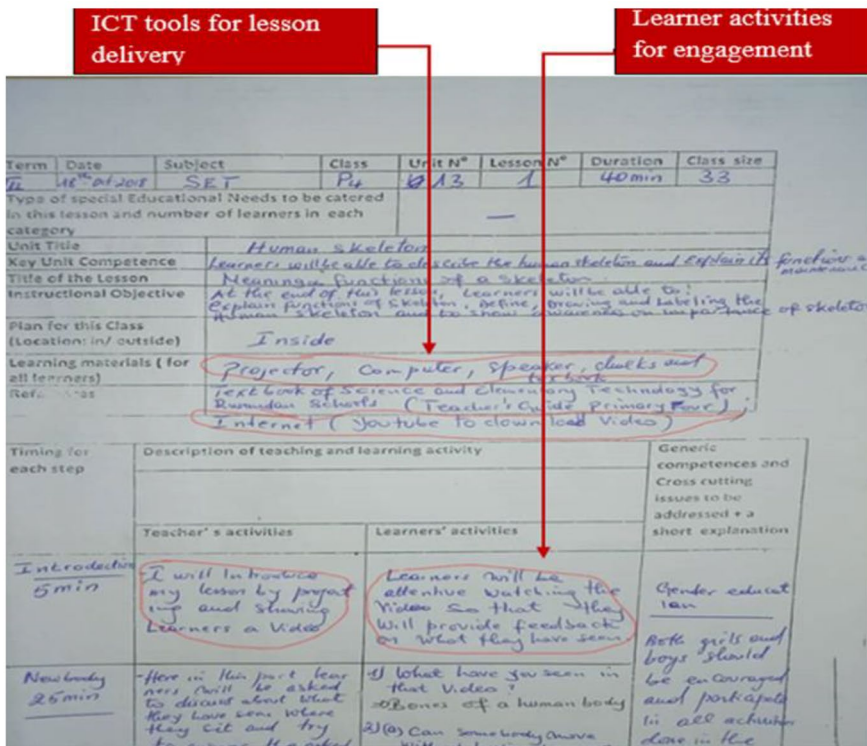 ICT tools for lesson
delivery
Learner activities
for engagement
Term Date Subject Class Unit N° Lesson N° Duration Class size
II 18th oct 2018 SET P4 13 1 40min 33
Type of special Educational Needs to be catered
in this lesson and number of learners in each
category
—
Unit Title Human skeleton
Key Unit Competence Learners will be able to describe the human skeleton and Explain its function
Title of the Lesson Meaning functions of a skeleton
Instructional Objective At the end of this lesson, Learners will be able to:
Explain functions of skeleton, Define, Drawing and Labeling the
Human skeleton and to show awareness on importance of skeleto
Plan for this Class
(Location: in/ outside)
Inside
Learning materials ( for
all learners)
Projector, Computer, Speaker, chalks and
Textbook of Science and Elementary Technology for
Rwandan Schools (Teacher's Guide Primary Four) ;
Internet ( Youtube to download Video)
Timing for
each step
Description of teaching and learning activity
Generic
competences and
Cross cutting
issues to be
addressed + a
short explanation
Teacher's activities
Learners' activities
Introduction
5min
- I will Introduce
my lesson by project
ing and showing
Learners a Video
Learners will be
attentive watching the
Video so that they
will provide feedback
on what they have seen.
Gender educat
ion
Both girls and
boys should
be encouraged
and participate
in all activities
done in the
New body
25min
- Here in this part lear
ners will be asked
to discuss about what
they have seen where
they sit and try
1) What have you seen in
that Video?
Bones of a human body
2) (a) Can somebody move